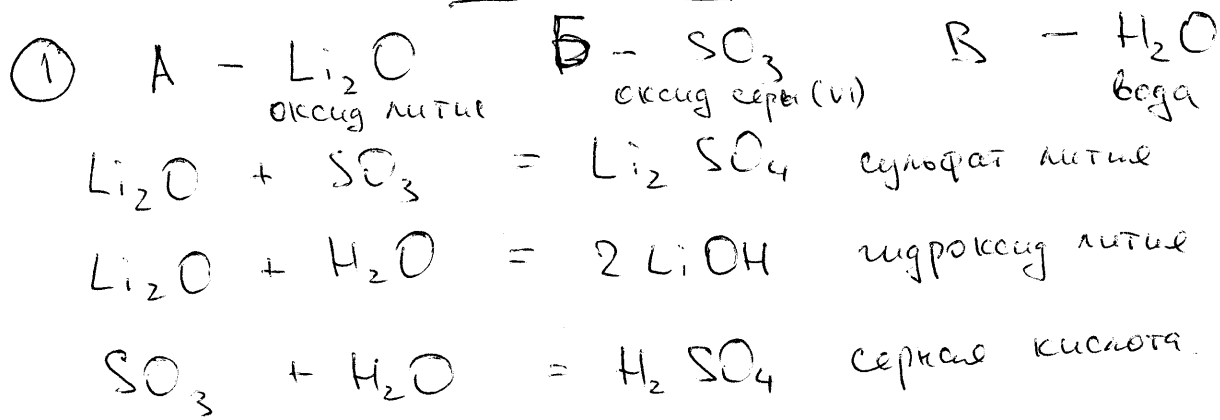 1 А - Li₂O Б - SO₃ В - H₂O
оксид лития оксид серы (VI) вода
Li₂O + SO₃ = Li₂SO₄ сульфат лития
Li₂O + H₂O = 2 LiOH гидроксид лития
SO₃ + H₂O = H₂SO₄ серная кислота